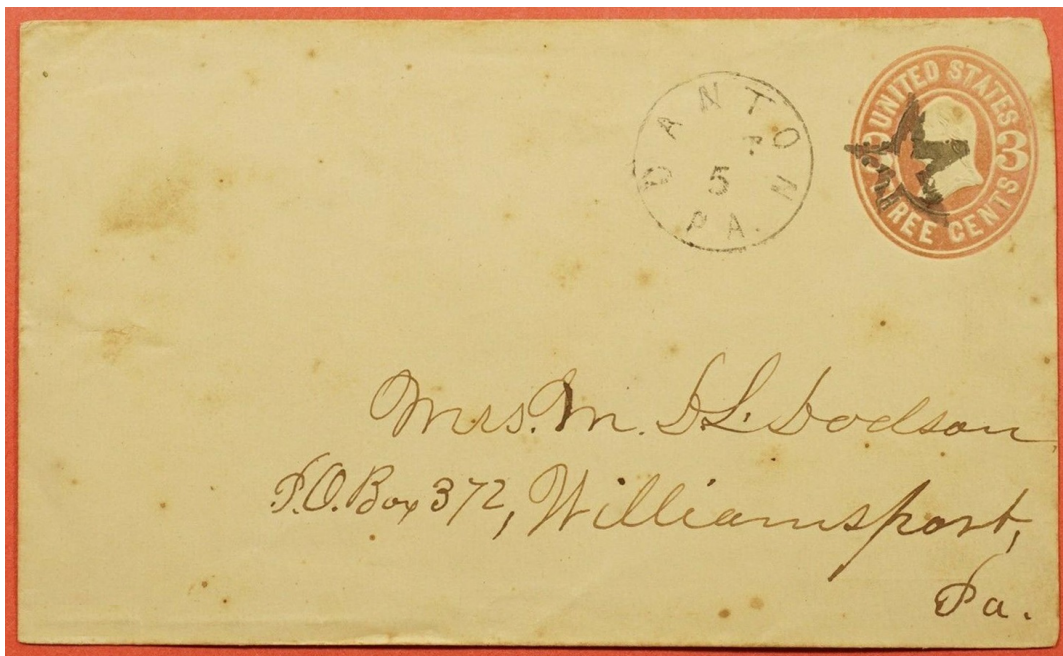 BANTON
5
PA.
UNITED STATES
3 3
THREE CENTS
Mrs. M. D. L. Dodson,
P.O. Box 372, Williamsport,
Pa.